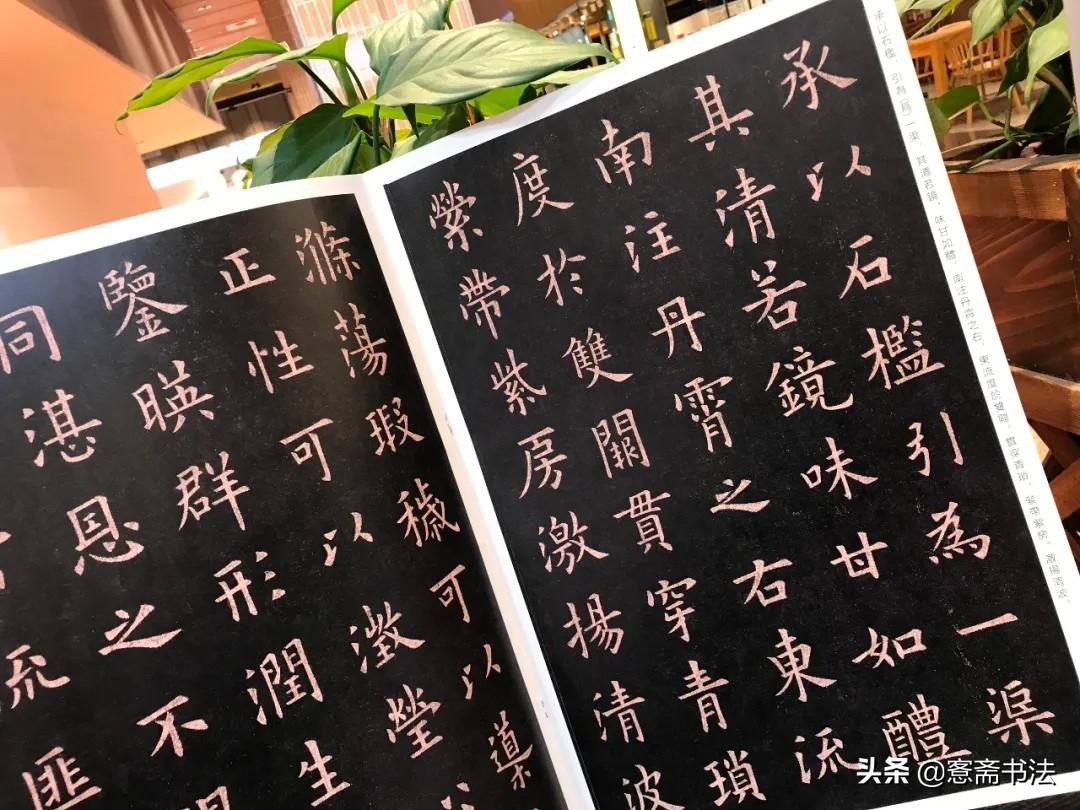 承以石檻，引為（爲）一渠，其清若鏡，味甘如醴，南注丹霄之右，東流度於雙闕，貫穿青瑣，縈帶紫房，激揚清波，
承以石檻引為一渠
其清若鏡味甘如醴
南注丹霄之右東流
度於雙闕貫穿青瑣
縈帶紫房激揚清波
滌蕩瑕穢可以導
正性可以澂瑩
鑒暎群形潤生
同湛恩之不
流匪
头条 @愙斋书法